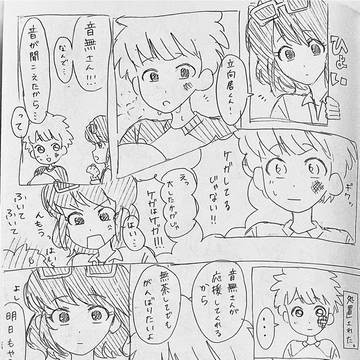 ひょい
立向居くん…
音無さん!!!
なんで…
音が聞こえたから…
って
ギクッ
ケガしてる
じゃない!!
えっ
大したケガじゃ
ケガはケガ!!!
はい…
んもう
処置された。
…
音無さんが
応援してくれる
から
無茶してでも
がんばりたいよ
よし
明日もや